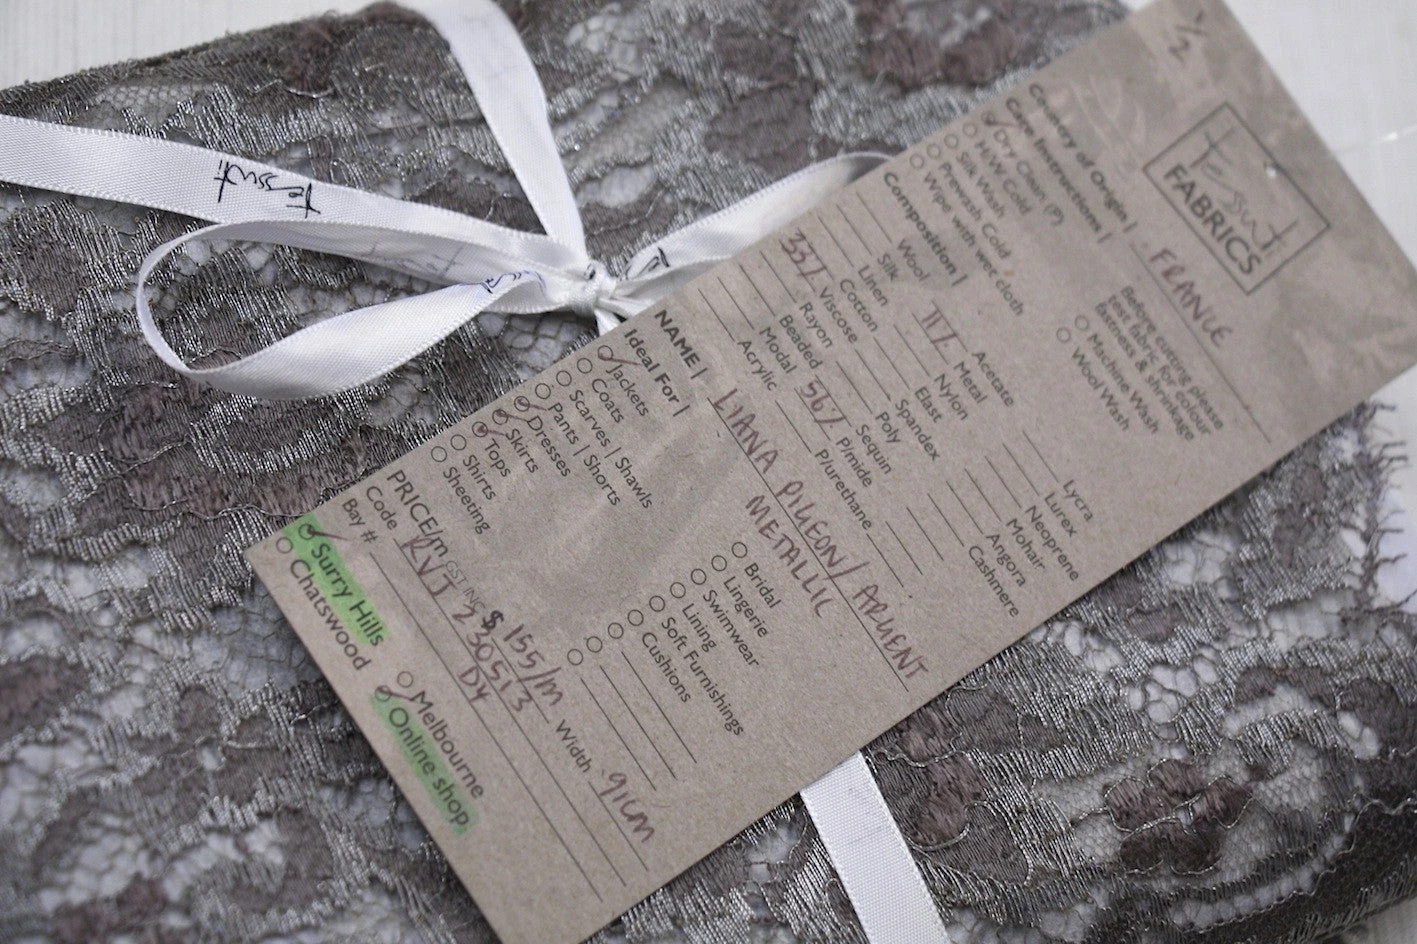 1/2
Tessuti
FABRICS
Country of Origin | FRANCE
Care Instructions |
Dry Clean (P)
H/W Cold
Silk Wash
Prewash Cold
Wipe with wet cloth
Before cutting please
test fabric for colour
fastness & shrinkage
Machine Wash
Wool Wash
Composition |
Wool
Silk
Linen
Cotton
33% Viscose
Rayon
Beaded
Modal
Acrylic
Acetate
11% Metal
Nylon
Elast
Spandex
Poly
Sequin
56% P/mide
P/urethane
Lycra
Lurex
Neoprene
Mohair
Angora
Cashmere
NAME | LIANA PIGEON/ARGENT
METALLIC
Ideal For |
Jackets
Coats
Scarves | Shawls
Pants | Shorts
Dresses
Skirts
Tops
Shirts
Sheeting
Bridal
Lingerie
Swimwear
Lining
Soft Furnishings
Cushions
PRICE/m GST INC $155/m Width 91cm
Code RVJ 230513
Bay # DY
Surry Hills
Chatswood
Melbourne
Online shop
Tessuti